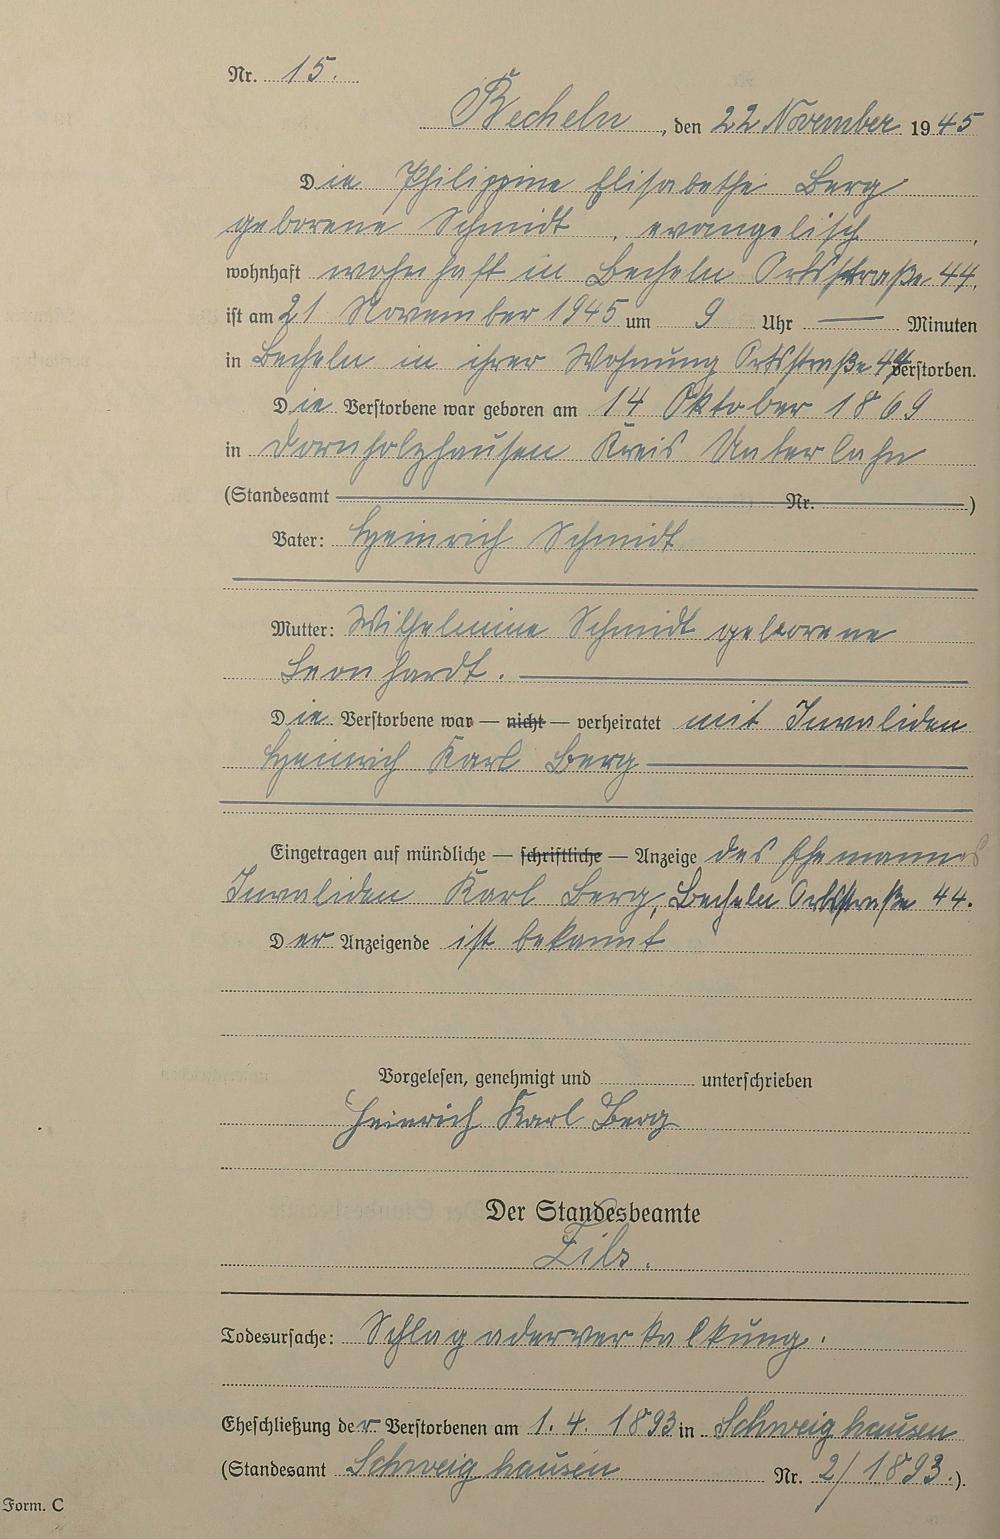 Nr. 15.
Becheln, den 22 November 1945
Die Philippine Elisabethe Berg
geborene Schmidt, evangelisch,
wohnhaft wohnhaft in Becheln Ortsstraße 44,
ist am 21 November 1945 um 9 Uhr — Minuten
in Becheln in ihrer Wohnung Ortsstraße 44 verstorben.
Die Verstorbene war geboren am 14 Oktober 1869
in Dornholzhausen Kreis Unterlahn
(Standesamt Nr. )
Vater: Heinrich Schmidt
Mutter: Wilhelmine Schmidt geborene
Leonhardt.
Die Verstorbene war — nicht — verheiratet mit Invaliden
Heinrich Karl Berg
Eingetragen auf mündliche — schriftliche — Anzeige des Ehemannes
Invaliden Karl Berg, Becheln Ortsstraße 44.
Der Anzeigende ist bekannt
Vorgelesen, genehmigt und unterschrieben
Heinrich Karl Berg
Der Standesbeamte
Todesursache: Schlagaderverkalkung.
Eheschließung der Verstorbenen am 1. 4. 1893 in Schweighausen
(Standesamt Schweighausen Nr. 2/1893.).
Form. C